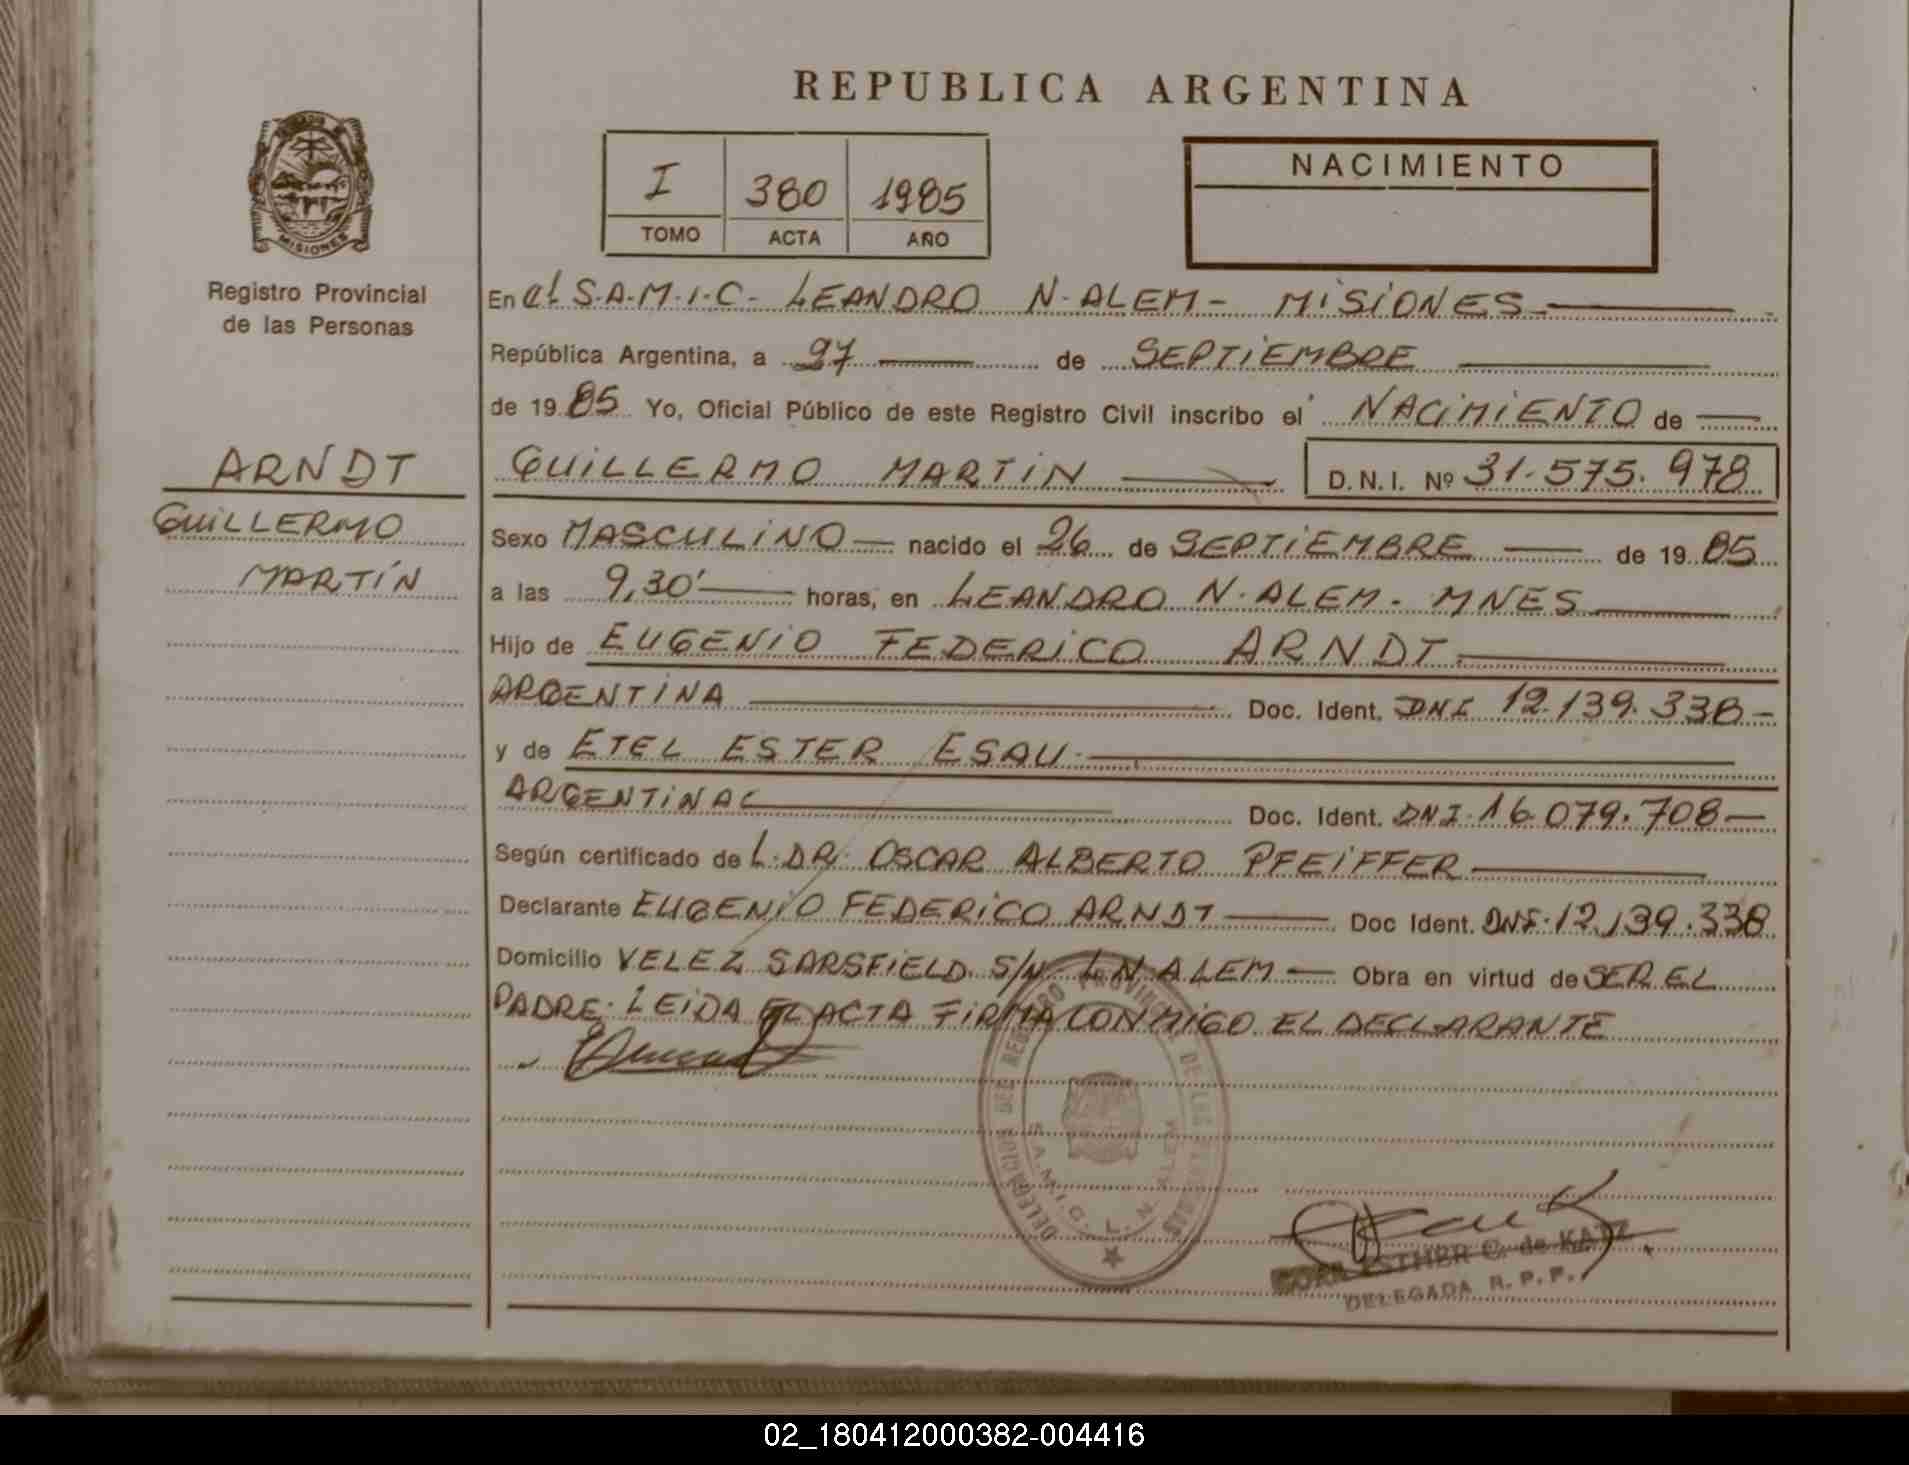 REPUBLICA ARGENTINA
I 380 1985
TOMO ACTA AÑO
NACIMIENTO
MISIONES
Registro Provincial
de las Personas
ARNDT
GUILLERMO
MARTÍN
En el S.A.M.I.C. LEANDRO N. ALEM - MISIONES
República Argentina, a 27 de SEPTIEMBRE
de 1985 Yo, Oficial Público de este Registro Civil inscribo el NACIMIENTO de
GUILLERMO MARTIN D.N.I. Nº 31.575.978
Sexo MASCULINO nacido el 26 de SEPTIEMBRE de 1985
a las 9,30' horas, en LEANDRO N. ALEM. MNES
Hijo de EUGENIO FEDERICO ARNDT
ARGENTINA Doc. Ident. DNI 12.139.338
y de ETEL ESTER ESAU
ARGENTINA Doc. Ident. DNI. 16.079.708
Según certificado de L. DR. OSCAR ALBERTO PFEIFFER
Declarante EUGENIO FEDERICO ARNDT Doc Ident. DNI. 12.139.338
Domicilio VELEZ SARSFIELD S/N L N ALEM Obra en virtud de SER EL
PADRE. LEIDA EL ACTA FIRMA CONMIGO EL DECLARANTE
DELEGACION DEL REGISTRO PROVINCIAL DE LAS PERSONAS
S.A.M.I.C. L. N. ALEM
ESTHER C. de KATZ
DELEGADA R. P. P.
02_180412000382-004416